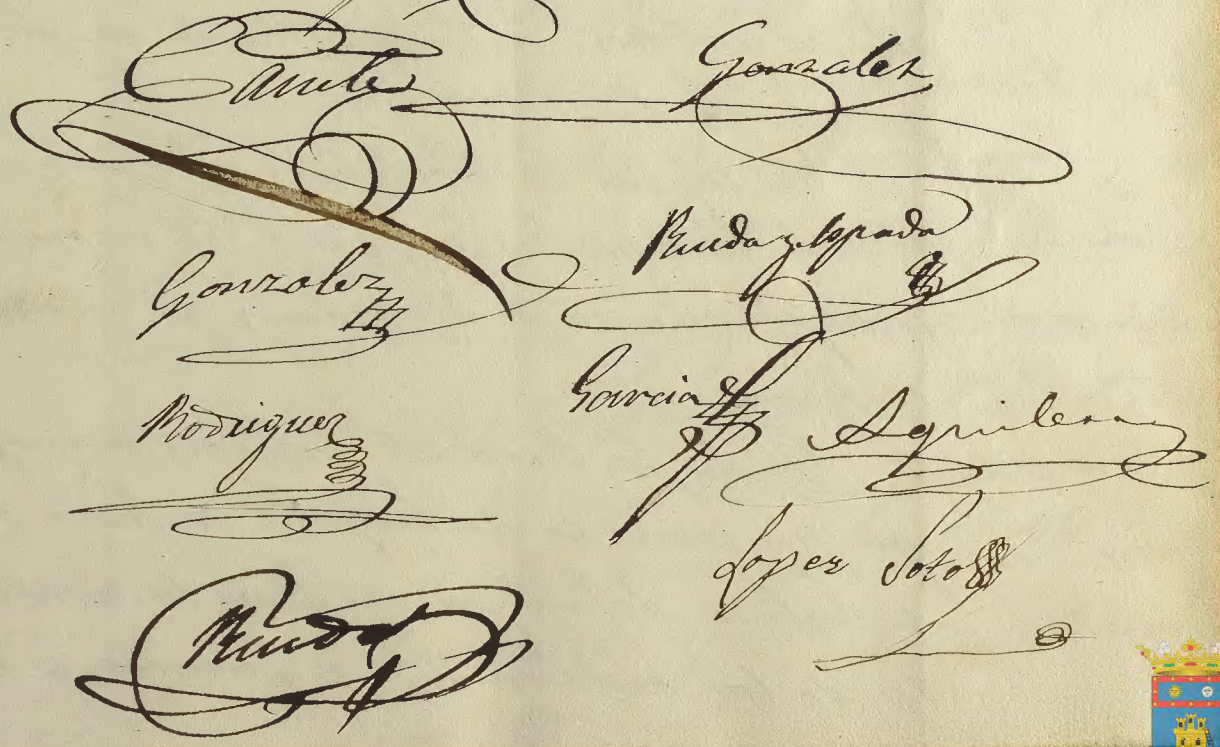 Cañete Gonzalez
Gonzalez Rueda y
Rodriguez Garcia Aguilera
Lopez Soto
Rueda